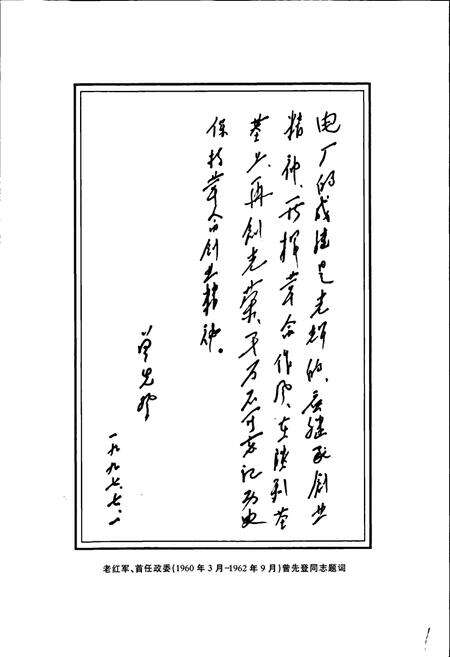 电厂的成绩是光辉的、应继承创业
精神、发挥革命作风、在胜利基
基上、再创光荣、千万不可忘记历史
保持革命创业精神。
曾先登
一九九七.七.一
老红军、首任政委(1960年3月-1962年9月)曾先登同志题词